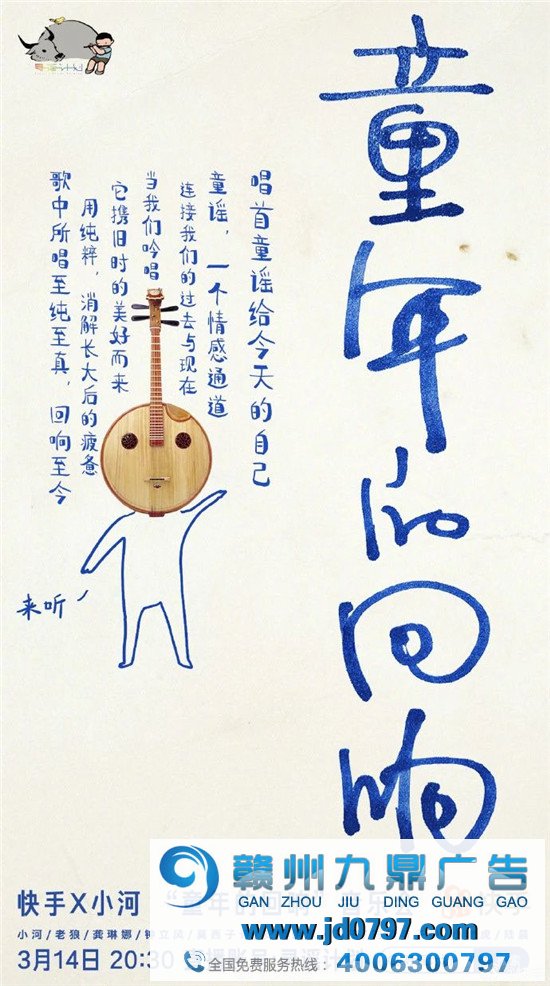 童年的回响
唱首童谣给今天的自己
童谣，一个情感通道
连接我们的过去与现在
当我们吟唱
它携旧时的美好而来
用纯粹，消解长大后的疲惫
歌中所唱至纯至真，回响至今
来听
快手X小河
小河/老狼/龚琳娜/钟立风/莫西子
3月14日 20:30
赣州九鼎广告
GAN ZHOU JIU DING GUANG GAO
www.jd0797.com
全国免费服务热线：4006300797